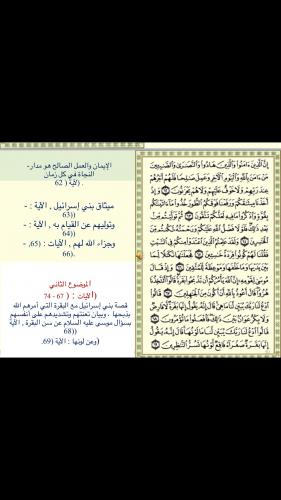 إِنَّ الَّذِينَ آمَنُوا وَالَّذِينَ هَادُوا وَالنَّصَارَىٰ وَالصَّابِئِينَ
مَنْ آمَنَ بِاللَّهِ وَالْيَوْمِ الْآخِرِ وَعَمِلَ صَالِحًا فَلَهُمْ أَجْرُهُمْ
عِندَ رَبِّهِمْ وَلَا خَوْفٌ عَلَيْهِمْ وَلَا هُمْ يَحْزَنُونَ ٦٢ وَإِذْ
أَخَذْنَا مِيثَاقَكُمْ وَرَفَعْنَا فَوْقَكُمُ الطُّورَ خُذُوا مَا آتَيْنَاكُم
بِقُوَّةٍ وَاذْكُرُوا مَا فِيهِ لَعَلَّكُمْ تَتَّقُونَ ٦٣ ثُمَّ تَوَلَّيْتُم مِّن
بَعْدِ ذَٰلِكَ فَلَوْلَا فَضْلُ اللَّهِ عَلَيْكُمْ وَرَحْمَتُهُ لَكُنتُم
مِّنَ الْخَاسِرِينَ ٦٤ وَلَقَدْ عَلِمْتُمُ الَّذِينَ اعْتَدَوْا مِنكُمْ فِي السَّبْتِ
فَقُلْنَا لَهُمْ كُونُوا قِرَدَةً خَاسِئِينَ ٦٥ فَجَعَلْنَاهَا نَكَالًا لِّمَا
بَيْنَ يَدَيْهَا وَمَا خَلْفَهَا وَمَوْعِظَةً لِّلْمُتَّقِينَ ٦٦ وَإِذْ
قَالَ مُوسَىٰ لِقَوْمِهِ إِنَّ اللَّهَ يَأْمُرُكُمْ أَن تَذْبَحُوا بَقَرَةً قَالُوا
أَتَتَّخِذُنَا هُزُوًا قَالَ أَعُوذُ بِاللَّهِ أَنْ أَكُونَ مِنَ الْجَاهِلِينَ ٦٧
قَالُوا ادْعُ لَنَا رَبَّكَ يُبَيِّن لَّنَا مَا هِيَ قَالَ إِنَّهُ يَقُولُ إِنَّهَا
بَقَرَةٌ لَّا فَارِضٌ وَلَا بِكْرٌ عَوَانٌ بَيْنَ ذَٰلِكَ فَافْعَلُوا مَا تُؤْمَرُونَ ٦٨
قَالُوا ادْعُ لَنَا رَبَّكَ يُبَيِّن لَّنَا مَا لَوْنُهَا قَالَ إِنَّهُ يَقُولُ
إِنَّهَا بَقَرَةٌ صَفْرَاءُ فَاقِعٌ لَّوْنُهَا تَسُرُّ النَّاظِرِينَ ٦٩
الإيمان والعمل الصالح هو مدار-
النجاة في كل زمان
. لآية ( 62
ميثاق بني إسرائيل , الآية : -
(63)
وتوليهم عن القيام به , الآية : -
(64)
وجزاء الله لهم , الآيات : (65, -
66).
الموضوع الثاني
(الآيات : ( 67 - 74
قصة بني إسرائيل مع البقرة التي أمرهم الله
بذبحها , وبيان تعنتهم وتشديدهم على أنفسهم
بسؤال موسى عليه السلام عن سن البقرة , الآية
(68)
(وعن لونها : الآية (69.